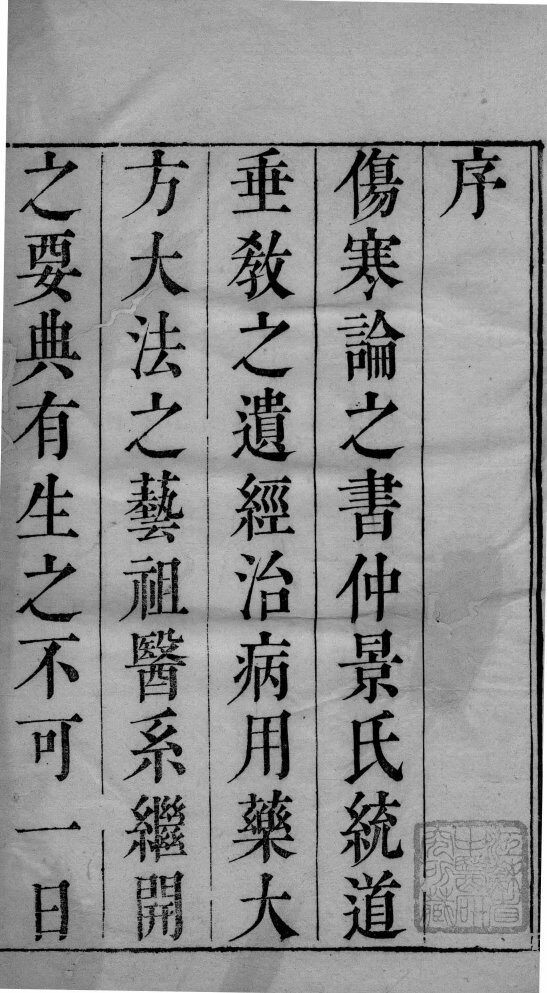 序
傷寒論之書仲景氏統道
垂教之遺經治病用藥大
方大法之藝祖醫系繼開
之要典有生之不可一日